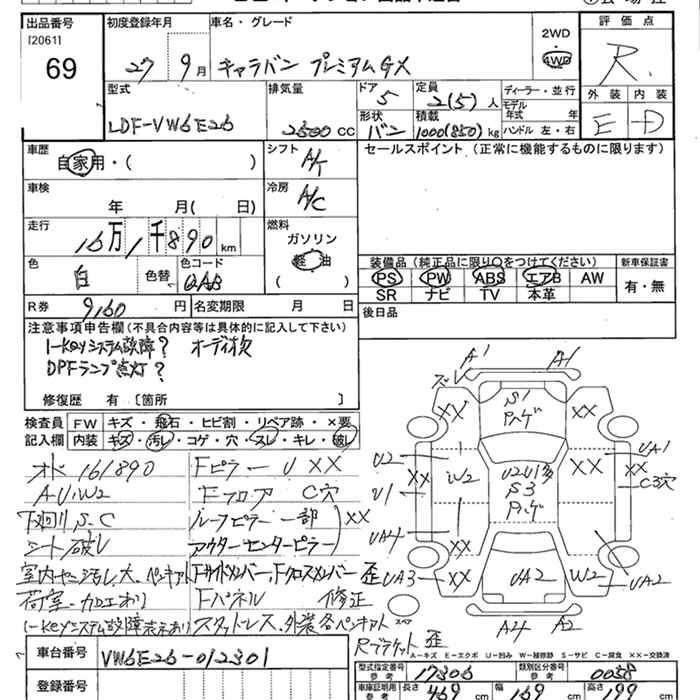 出品番号 初度登録年月 車名・グレード 評価点
[2061] 2WD
69 27 9月 キャラバン プレミアムGX 4WD R
型式 排気量 ドア 5 定員 2(5)人 ディーラー・並行 外装 内装
モデル年式 年
LDF-VW6E26 2500cc 形状 バン 積載 1000(850)kg ハンドル 左・右 E D
車歴 シフト A/T セールスポイント (正常に機能するものに限ります)
自家用・( )
車検 冷房 A/C
年 月( 日)
走行 燃料
16万1千890km ガソリン
軽油
色 色替 色コード ( ) 装備品 (純正品に限り○をつけてください) 新車保証書
白 QAB PS PW ABS エアB AW 有・無
SR ナビ TV 本革
R券 9160円 名変期限 月 日 後日品
注意事項申告欄(不具合内容等は具体的に記入して下さい)
I-Keyシステム故障? オーディオ欠
DPFランプ点灯?
修復歴 有〔箇所 〕
検査員記入欄 FW キズ・飛石・ヒビ割・リペア跡・×要
内装 キズ・汚レ・コゲ・穴・スレ・キレ・破レ
161890 Fピラー U XX
A・U・W2 Fフロア C穴
下廻り S、C ルーフピラー一部 XX
シート破レ アウターセンターピラー
荷室・加工あり Fパネル 修正
I-Keyシステム故障表示あり スタッドレス、外装各ペンキアト
Rブラケット歪
A1 A1
XX S1 XX
U2 XX W2 XX XX UA1
U1 S3 C3穴
UA4
UA3 XX UA2 W2 UA2
A4 A2
A-キズ E-エクボ U-凹み W-補修跡 S-サビ C-腐食 XX-交換済
車台番号 VW6E26-012301 型式指定番号 参考 17306 類別区分番号 参考 0058
登録番号 車庫証明用参考 長さ 469cm 幅 169cm 高さ 199cm